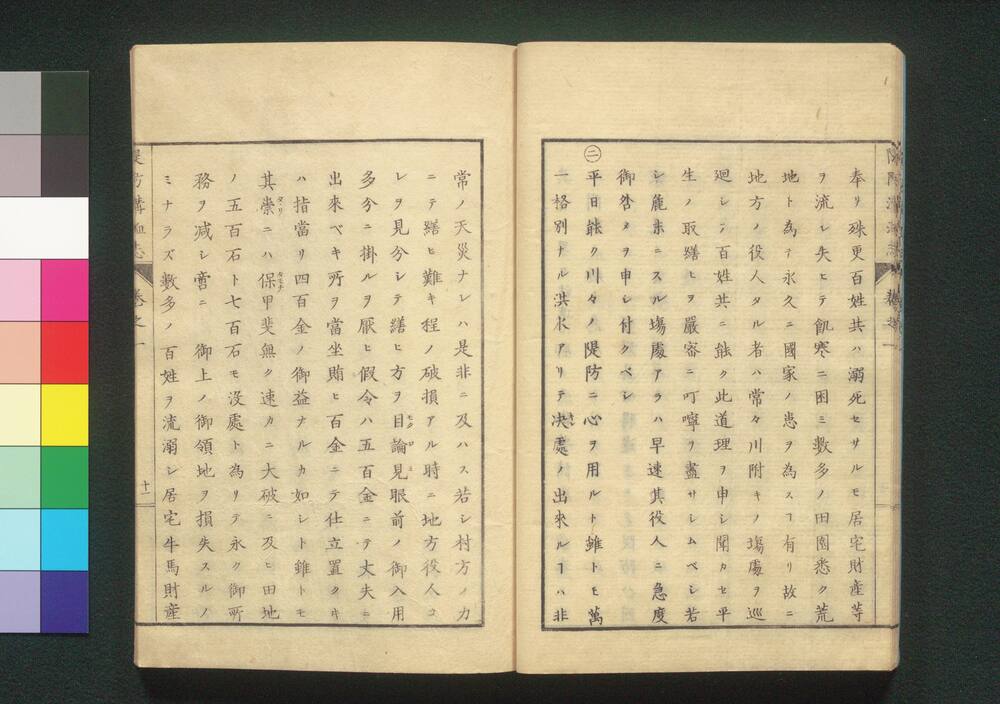 奉リ殊更百姓共ハ溺死セサルモ居宅財産等
ヲ流シ失ヒテ飢寒ニ困ミ數多ノ田圃悉ク荒
地ト為テ永久ニ國家ノ患ヲ為スヿ有リ故ニ
地方ノ役人タル者ハ常々川附キノ塲處ヲ巡
廻シテ百姓共ニ能ク此道理ヲ申シ聞カセ平
生ノ取繕ヒヲ嚴審ニ叮嚀リ盡サシムベシ若
シ麁末ニスル塲處アラハ早速其役人ニ急度
御咎メヲ申シ付クベシ
㊁平日能ク川々ノ隄防ニ心ヲ用ルト雖トモ萬
一格別ナル洪水アリテ决處ノ出來ルヿハ非
常ノ天災ナレハ是非ニ及ハス若シ村方ノ力
ニテ繕ヒ難キ程ノ破損アル時ニ地方役人コ
レヲ見分シテ繕ヒ方ヲ目論見眼前ノ御入用
多分ニ掛ルヲ厭ヒ假令ハ五百金ニテ丈夫ニ
出來ベキ所ヲ當坐賄ヒ百金ニテ仕立置クキ
ハ指當リ四百金ノ御益ナルカ如シト雖トモ
其祟ニハ保甲斐無ク速カニ大破ニ及ヒ田地
ノ五百石ト七百石モ没處ト為リテ永ク御所
務ヲ减シ啻ニ 御上ノ御領地ヲ損失スルノ
ミナラズ數多ノ百姓ヲ流溺シ居宅牛馬財産
防溝洫志 卷之一
十一